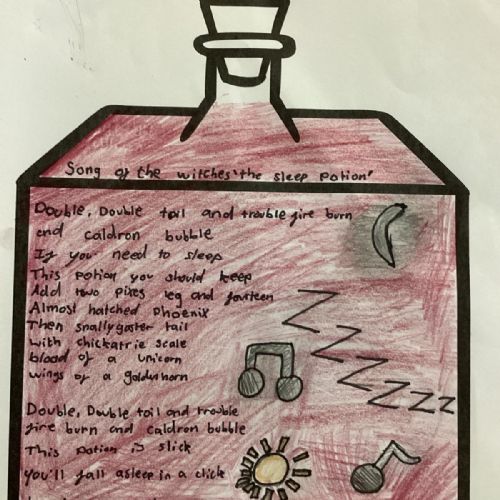 Song of the witches 'the sleep potion'
Double, Double toil and trouble fire burn
and caldron bubble
If you need to sleep
This potion you should keep
Add two pixes leg and fourteen
Almost hatched Phoenix
Then snallygaster tail
with chickatrie scale
blood of a unicorn
wings of a goldenhorn
Double, Double toil and trouble
fire burn and caldron bubble
This Potion is slick
You'll fall asleep in a click
ZZZZZZZ